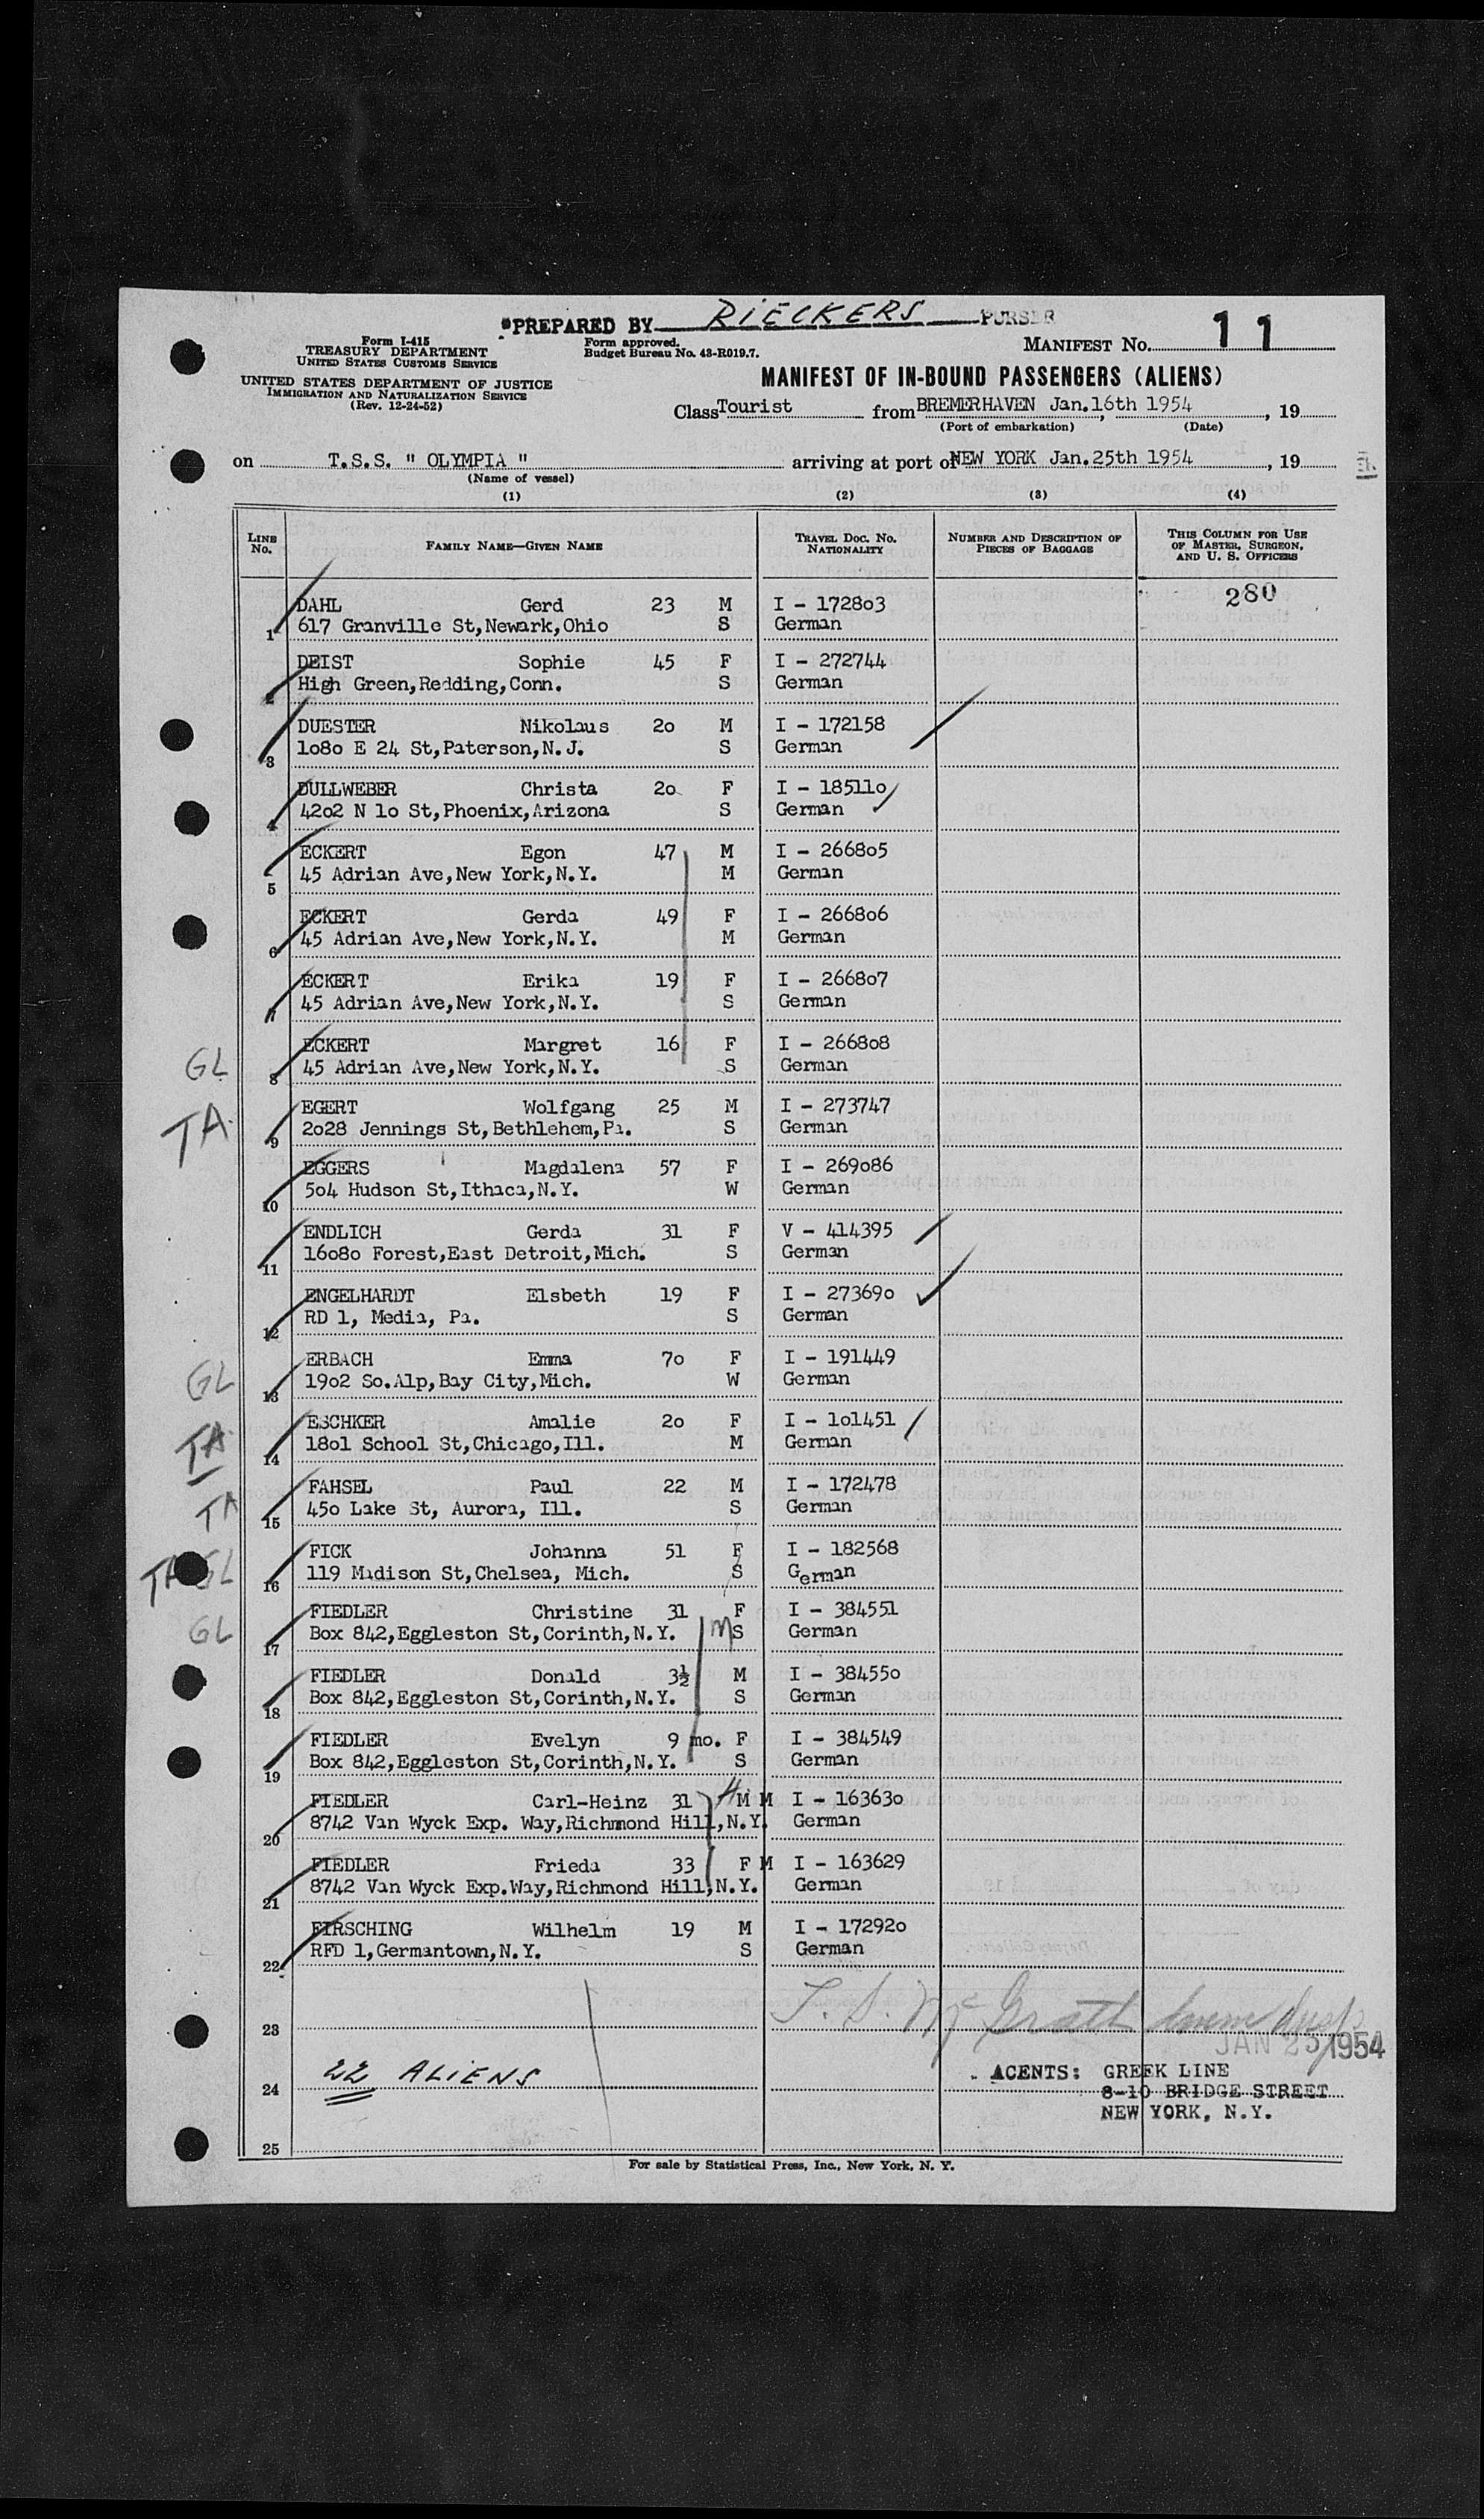 PREPARED BY RIECKERS PURSER
Form I-415
TREASURY DEPARTMENT
UNITED STATES CUSTOMS SERVICE
UNITED STATES DEPARTMENT OF JUSTICE
IMMIGRATION AND NATURALIZATION SERVICE
(Rev. 12-24-52)
Form approved.
Budget Bureau No. 43-R019.7.
MANIFEST No. 11
MANIFEST OF IN-BOUND PASSENGERS (ALIENS)
Class Tourist from BREMERHAVEN Jan.16th 1954, 19
(Port of embarkation) (Date)
on T.S.S. " OLYMPIA " arriving at port of NEW YORK Jan.25th 1954, 19
(Name of vessel)
(1) (2) (3) (4)
LINE No. FAMILY NAME—GIVEN NAME TRAVEL DOC. NO. NATIONALITY NUMBER AND DESCRIPTION OF PIECES OF BAGGAGE THIS COLUMN FOR USE OF MASTER, SURGEON, AND U. S. OFFICERS
280
DAHL Gerd 23 M I - 1728o3
1 617 Granville St,Newark,Ohio S German
DEIST Sophie 45 F I - 272744
2 High Green,Redding,Conn. S German
DUESTER Nikolaus 2o M I - 172158
3 1o8o E 24 St,Paterson,N.J. S German
DULLWEBER Christa 2o F I - 18511o
4 42o2 N 1o St,Phoenix,Arizona S German
ECKERT Egon 47 M I - 2668o5
5 45 Adrian Ave,New York,N.Y. M German
ECKERT Gerda 49 F I - 2668o6
6 45 Adrian Ave,New York,N.Y. M German
ECKERT Erika 19 F I - 2668o7
7 45 Adrian Ave,New York,N.Y. S German
ECKERT Margret 16 F I - 2668o8
GL 8 45 Adrian Ave,New York,N.Y. S German
EGERT Wolfgang 25 M I - 273747
TA 9 2o28 Jennings St,Bethlehem,Pa. S German
EGGERS Magdalena 57 F I - 269o86
10 5o4 Hudson St,Ithaca,N.Y. W German
ENDLICH Gerda 31 F V - 414395
11 16o8o Forest,East Detroit,Mich. S German
ENGELHARDT Elsbeth 19 F I - 27369o
12 RD 1, Media, Pa. S German
ERBACH Emma 7o F I - 191449
GL 13 19o2 So.Alp,Bay City,Mich. W German
ESCHKER Amalie 2o F I - 1o1451
TA 14 18o1 School St,Chicago,Ill. M German
FAHSEL Paul 22 M I - 172478
TA 15 45o Lake St, Aurora, Ill. S German
FICK Johanna 51 F I - 182568
TA GL 16 119 Madison St,Chelsea, Mich. S German
FIEDLER Christine 31 F I - 384551
GL 17 Box 842,Eggleston St,Corinth,N.Y. M S German
FIEDLER Donald 3½ M I - 38455o
18 Box 842,Eggleston St,Corinth,N.Y. S German
FIEDLER Evelyn 9 mo. F I - 384549
19 Box 842,Eggleston St,Corinth,N.Y. S German
FIEDLER Carl-Heinz 31 M M I - 16363o
20 8742 Van Wyck Exp. Way,Richmond Hill,N.Y. German
FIEDLER Frieda 33 F M I - 163629
21 8742 Van Wyck Exp.Way,Richmond Hill,N.Y. German
FIRSCHING Wilhelm 19 M I - 17292o
22 RFD 1,Germantown,N.Y. S German
23 T. S. McGrath Imm Insp
JAN 25 1954
24 22 ALIENS
AGENTS: GREEK LINE
8-10 BRIDGE STREET
NEW YORK, N.Y.
25
For sale by Statistical Press, Inc., New York, N. Y.